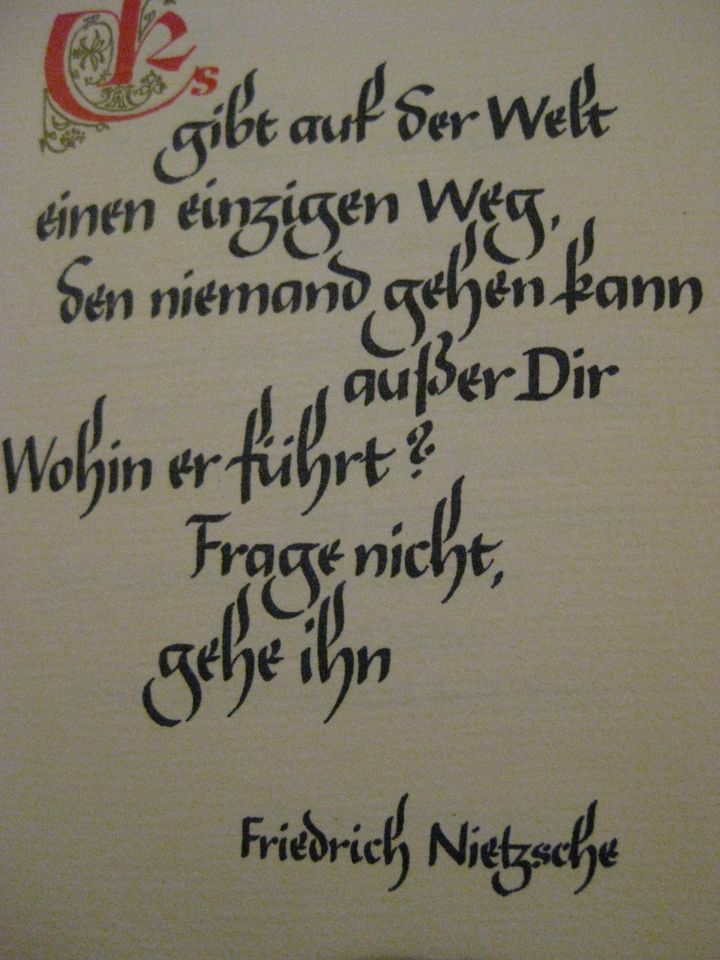 Es
gibt auf der Welt
einen einzigen Weg,
den niemand gehen kann
außer Dir
Wohin er führt?
Frage nicht,
gehe ihn
Friedrich Nietzsche